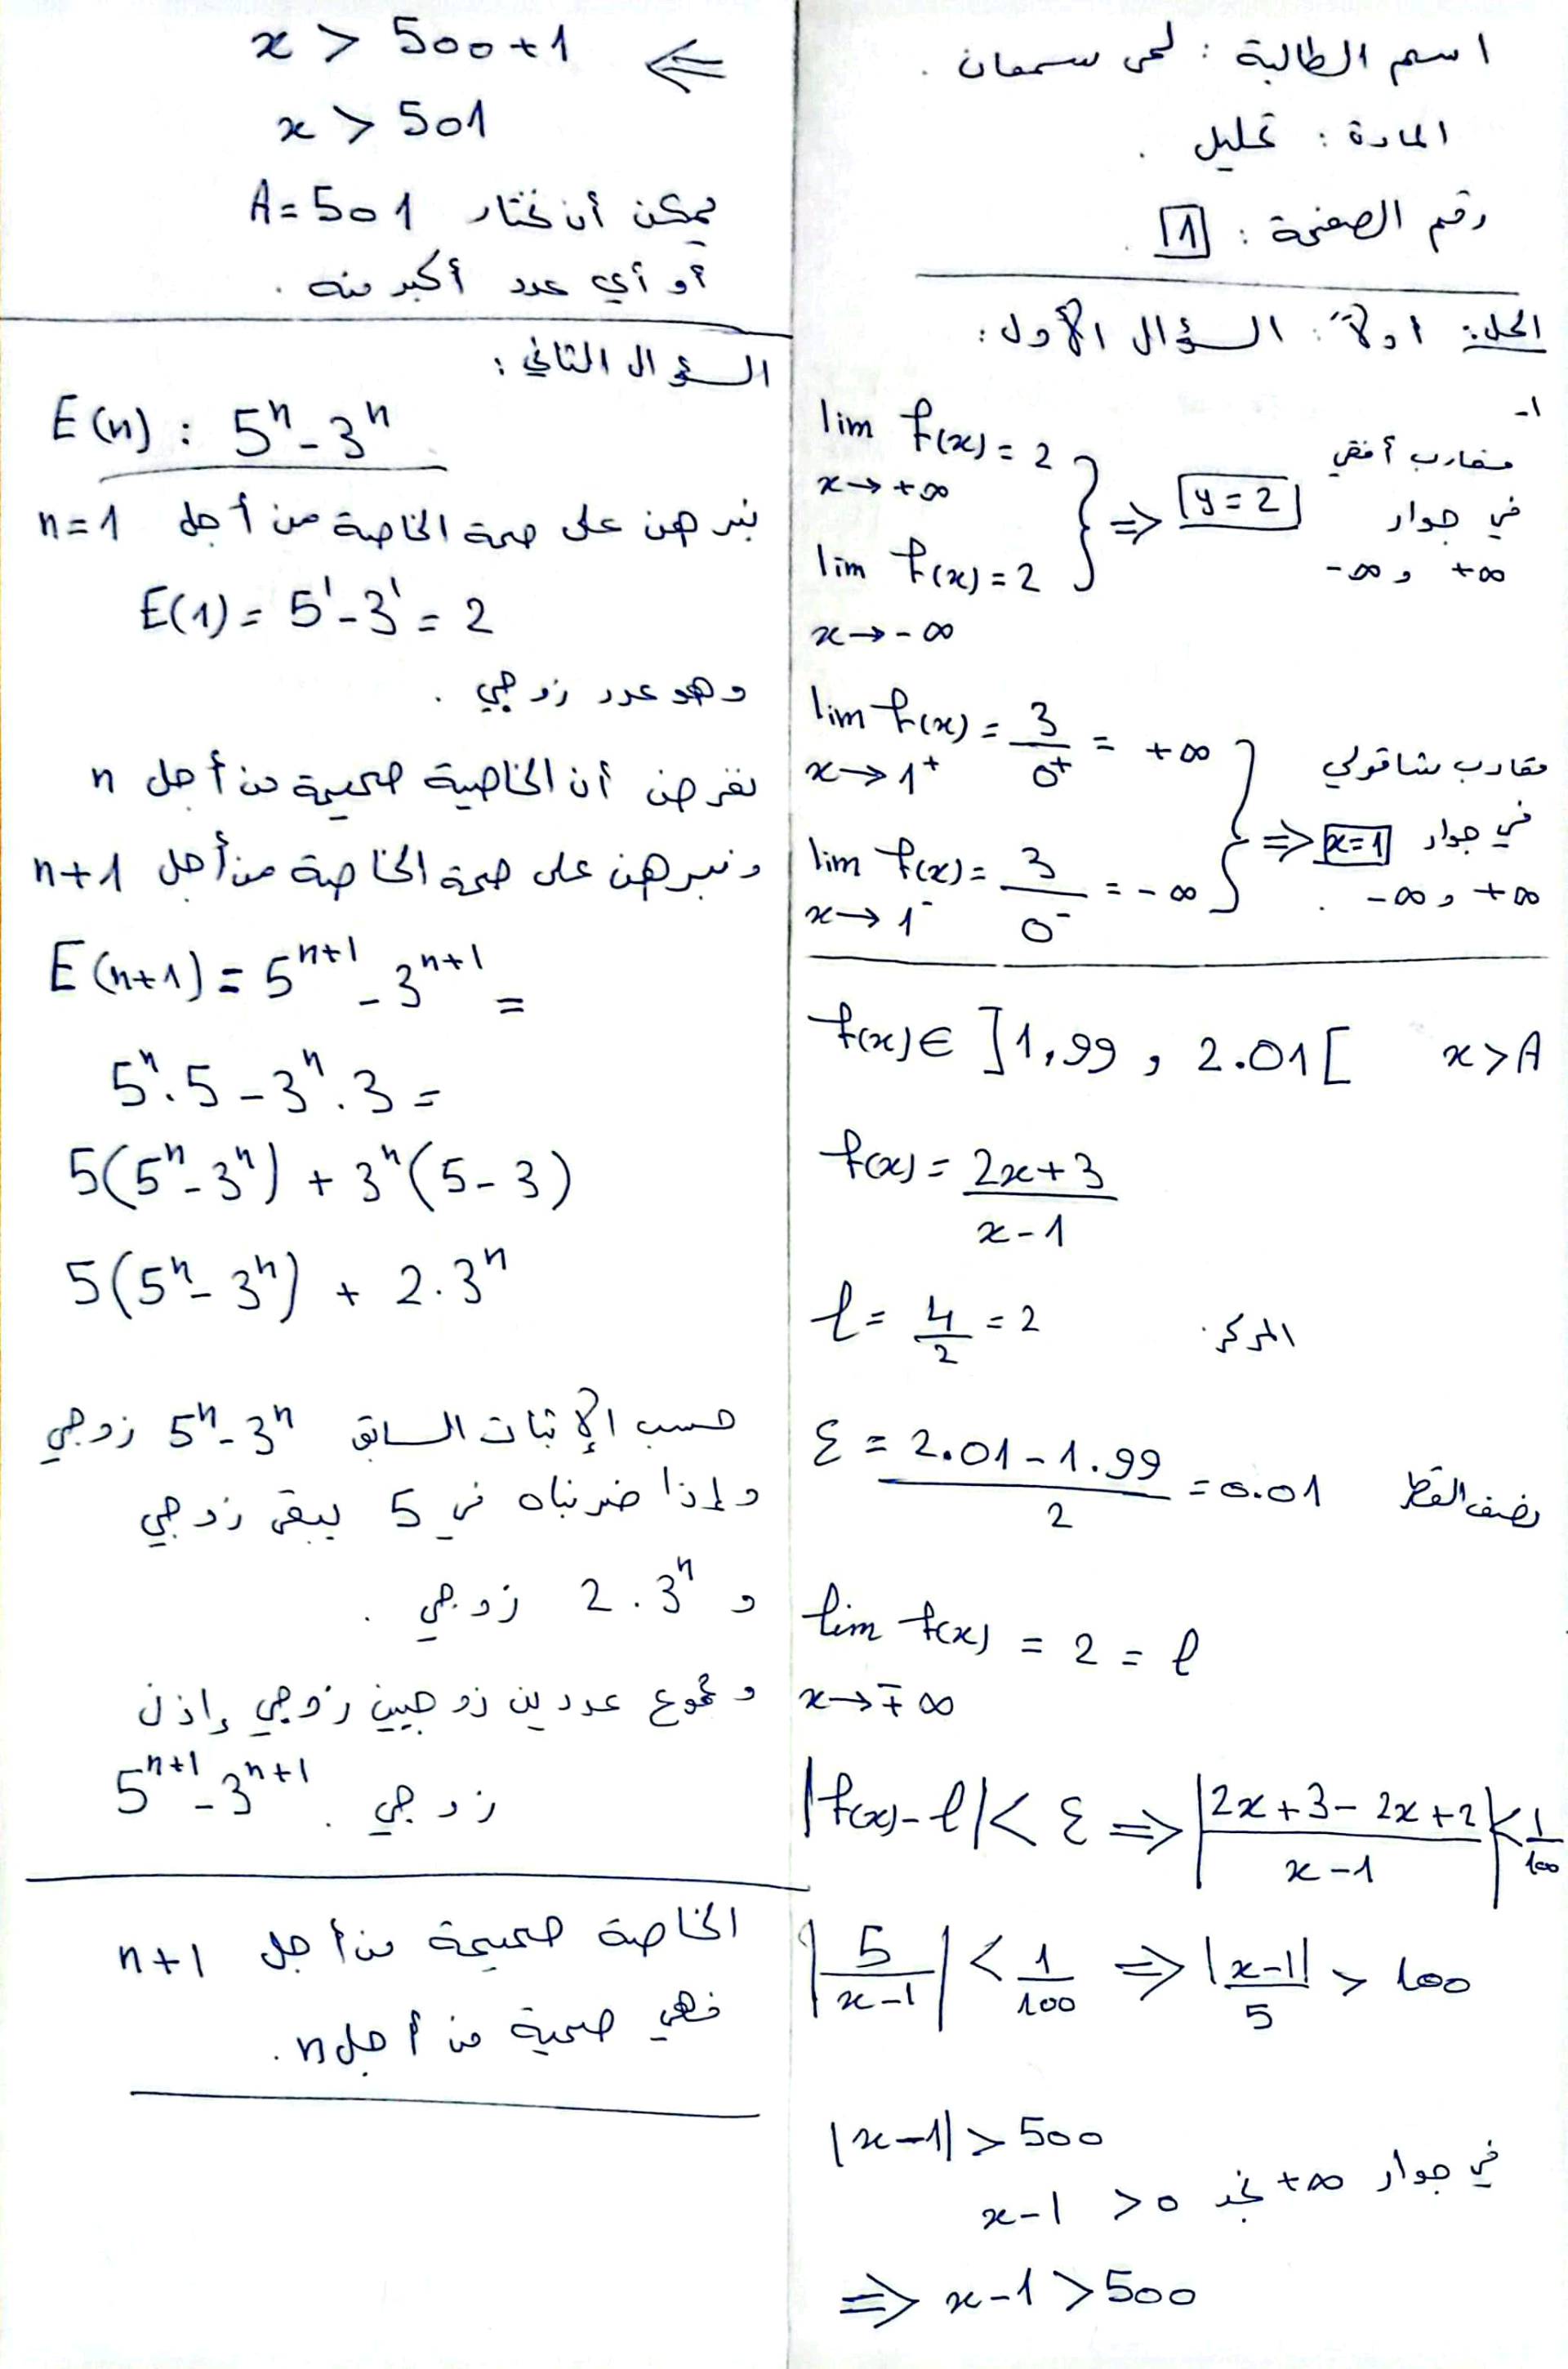 اسم الطالبة : لمى سمعان .
المادة : تحليل .
رقم الصفحة : 1 .
الحل : اولاً : السؤال الأول :
1-
lim f(x) = 2
x → +∞
lim f(x) = 2
x → -∞
} ⇒ y = 2
مقارب أفقي
في جوار
+∞ و -∞
lim f(x) = 3/0⁺ = +∞
x → 1⁺
lim f(x) = 3/0⁻ = -∞
x → 1⁻
} ⇒ x=1
مقارب شاقولي
في جوار
+∞ و -∞ .
f(x) ∈ ]1,99 , 2.01[ x > A
f(x) = (2x+3)/(x-1)
ℓ = 4/2 = 2 المركز .
ε = (2.01 - 1.99)/2 = 0.01 نصف القطر
lim f(x) = 2 = ℓ
x → ∓∞
|f(x) - ℓ| < ε ⇒ |(2x+3-2x+2)/(x-1)| < 1/100
|5/(x-1)| < 1/100 ⇒ |x-1|/5 > 100
|x-1| > 500
في جوار +∞ نجد x-1 > 0
⇒ x-1 > 500
⇐ x > 500+1
x > 501
يمكن أن نختار A = 501
أو أي عدد أكبر منه .
السؤال الثاني :
E(n) : 5ⁿ - 3ⁿ
نبرهن على صحة الخاصة من أجل n=1
E(1) = 5¹ - 3¹ = 2
وهو عدد زوجي .
نفرض أن الخاصية صحيحة من أجل n
ونبرهن على صحة الخاصة من أجل n+1
E(n+1) = 5ⁿ⁺¹ - 3ⁿ⁺¹ =
5ⁿ.5 - 3ⁿ.3 =
5(5ⁿ - 3ⁿ) + 3ⁿ(5-3)
5(5ⁿ - 3ⁿ) + 2.3ⁿ
حسب الإثبات السابق 5ⁿ - 3ⁿ زوجي
وإذا ضربناه في 5 يبقى زوجي
و 2.3ⁿ زوجي .
ومجموع عددين زوجيين زوجي إذن
5ⁿ⁺¹ - 3ⁿ⁺¹ زوجي .
الخاصة صحيحة من أجل n+1
فهي صحيحة من أجل n .